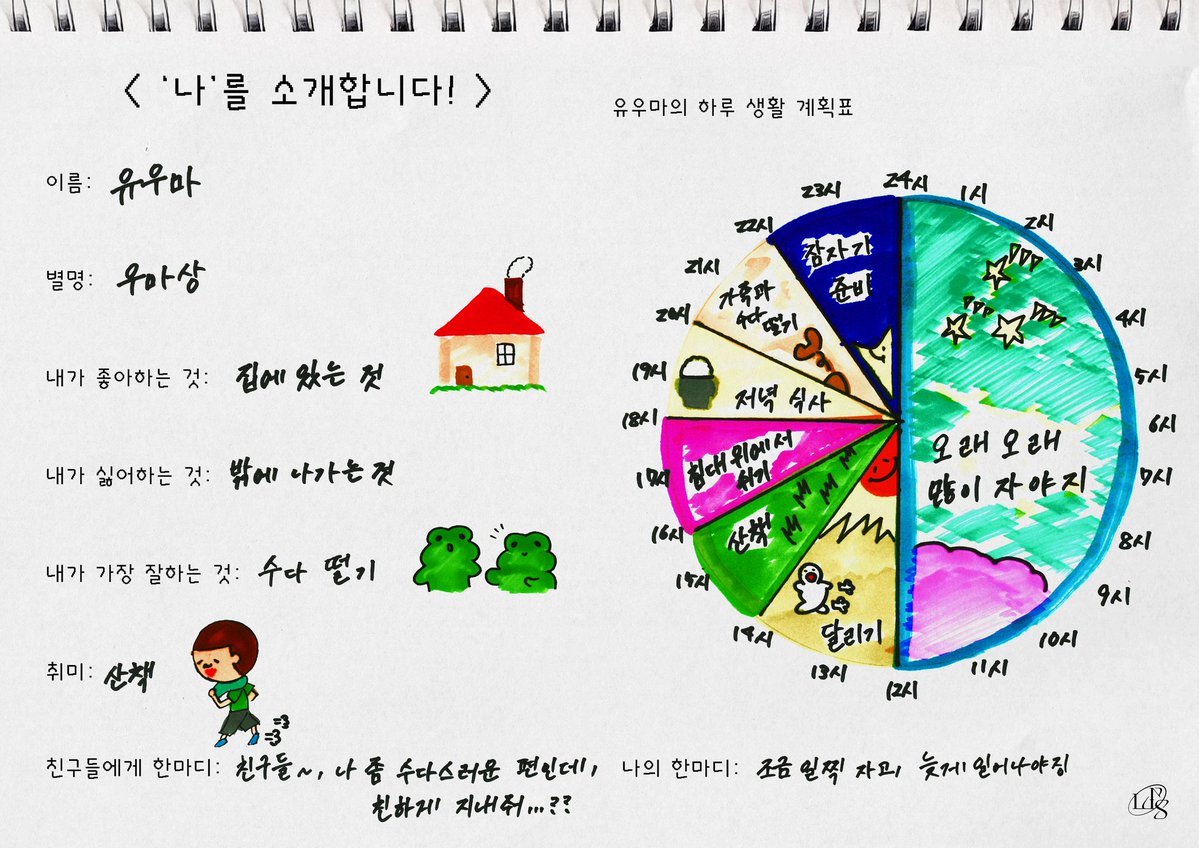 < '나'를 소개합니다! >
이름: 유우마
별명: 우마상
내가 좋아하는 것: 집에 있는 것
내가 싫어하는 것: 밖에 나가는 것
내가 가장 잘하는 것: 수다 떨기
취미: 산책
친구들에게 한마디: 친구들~, 나 좀 수다스러운 편인데,
친하게 지내줘...??
유우마의 하루 생활 계획표
24시
1시
2시
3시
4시
5시
6시
7시
8시
9시
10시
11시
12시
13시
14시
15시
16시
17시
18시
19시
20시
21시
22시
23시
오래오래
많이 자야지
달리기
산책
침대 위에서
쉬기
저녁 식사
가족과
수다
떨기
잠자기
준비
나의 한마디: 조금 일찍 자고, 늦게 일어나야징